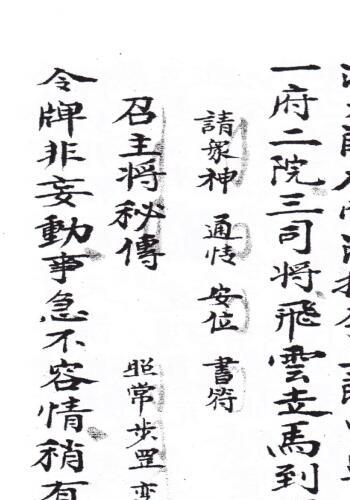 一府二院三司將飛雲走馬到
請眾神 通情 安位 書符
召主將秘傳 照常步罡変
令牌非妄動事急不容情稍有